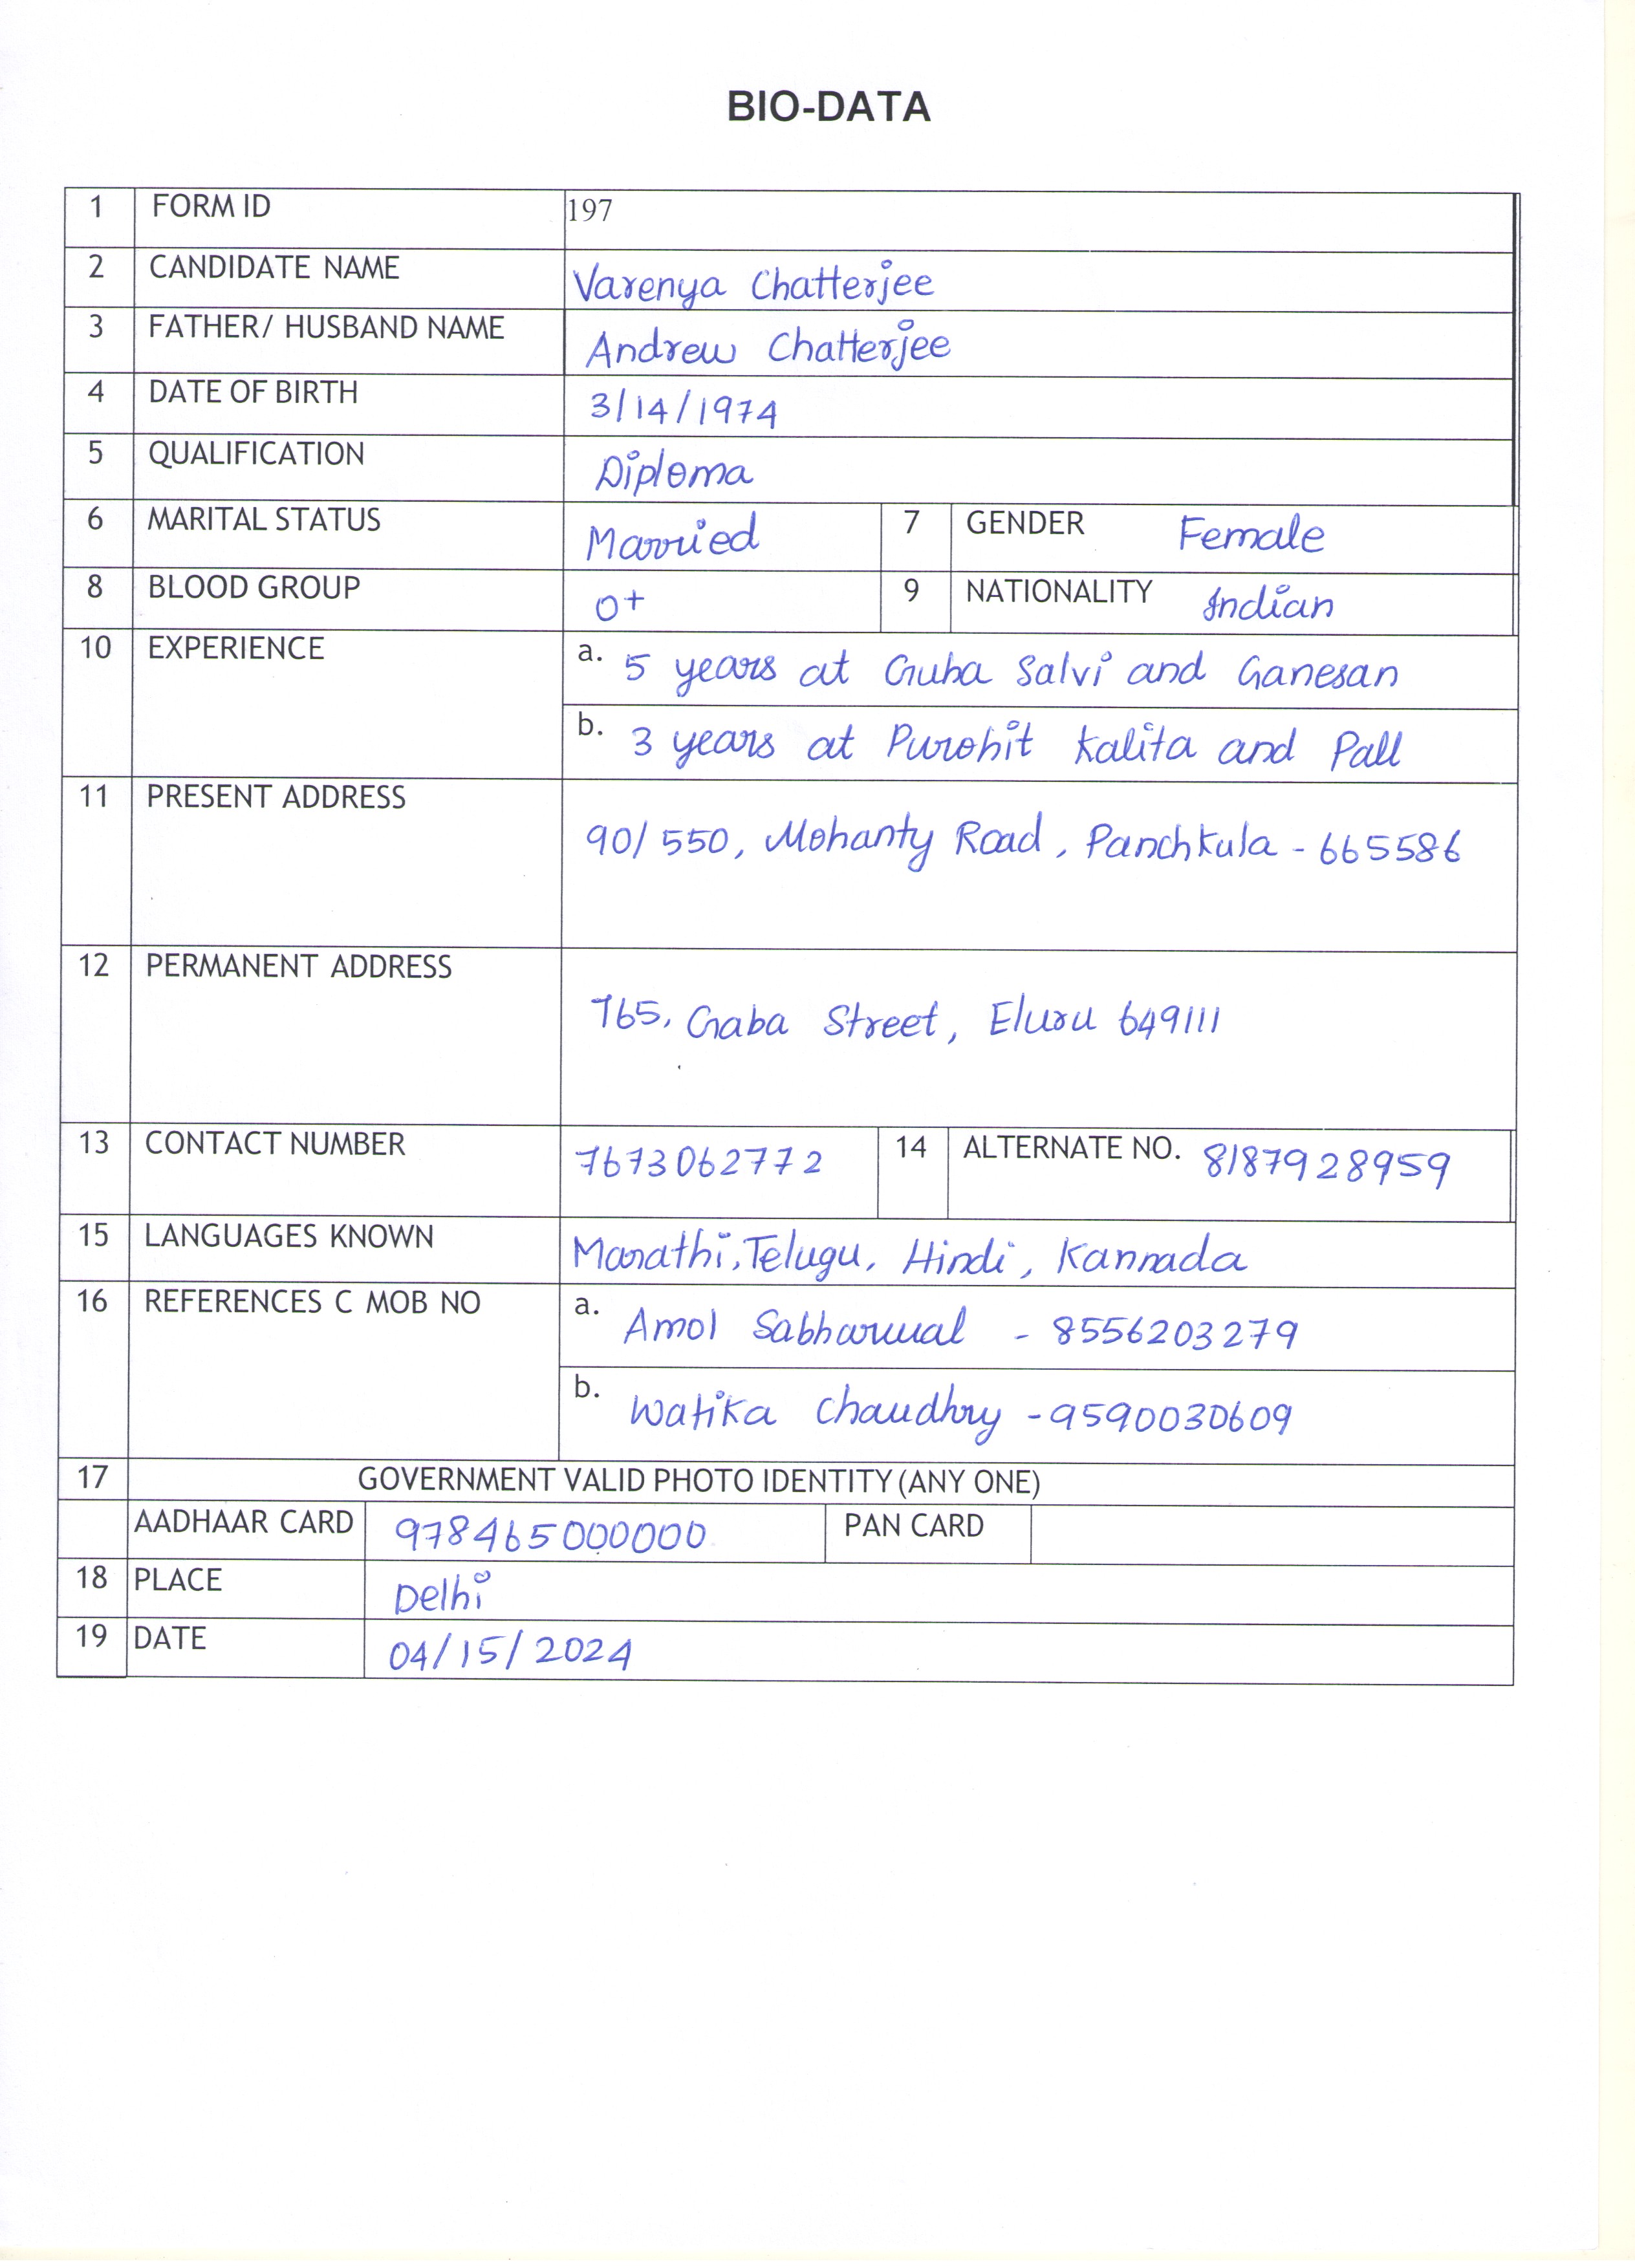 BIO-DATA
1 FORM ID 197
2 CANDIDATE NAME Varenya Chatterjee
3 FATHER/ HUSBAND NAME Andrew Chatterjee
4 DATE OF BIRTH 3/14/1974
5 QUALIFICATION Diploma
6 MARITAL STATUS Married 7 GENDER Female
8 BLOOD GROUP O+ 9 NATIONALITY Indian
10 EXPERIENCE a. 5 years at Guha Salvi and Ganesan
b. 3 years at Purohit Kalita and Pall
11 PRESENT ADDRESS
90/550, Mohanty Road, Panchkula - 665586
12 PERMANENT ADDRESS
765, Gaba Street, Eluru 649111
13 CONTACT NUMBER 7673062772 14 ALTERNATE NO. 8187928959
15 LANGUAGES KNOWN Marathi, Telugu, Hindi, Kannada
16 REFERENCES C MOB NO a. Amol Sabharwal - 8556203279
b. Watika Chaudhry - 9590030609
17 GOVERNMENT VALID PHOTO IDENTITY (ANY ONE)
AADHAAR CARD 978465000000 PAN CARD
18 PLACE Delhi
19 DATE 04/15/2024